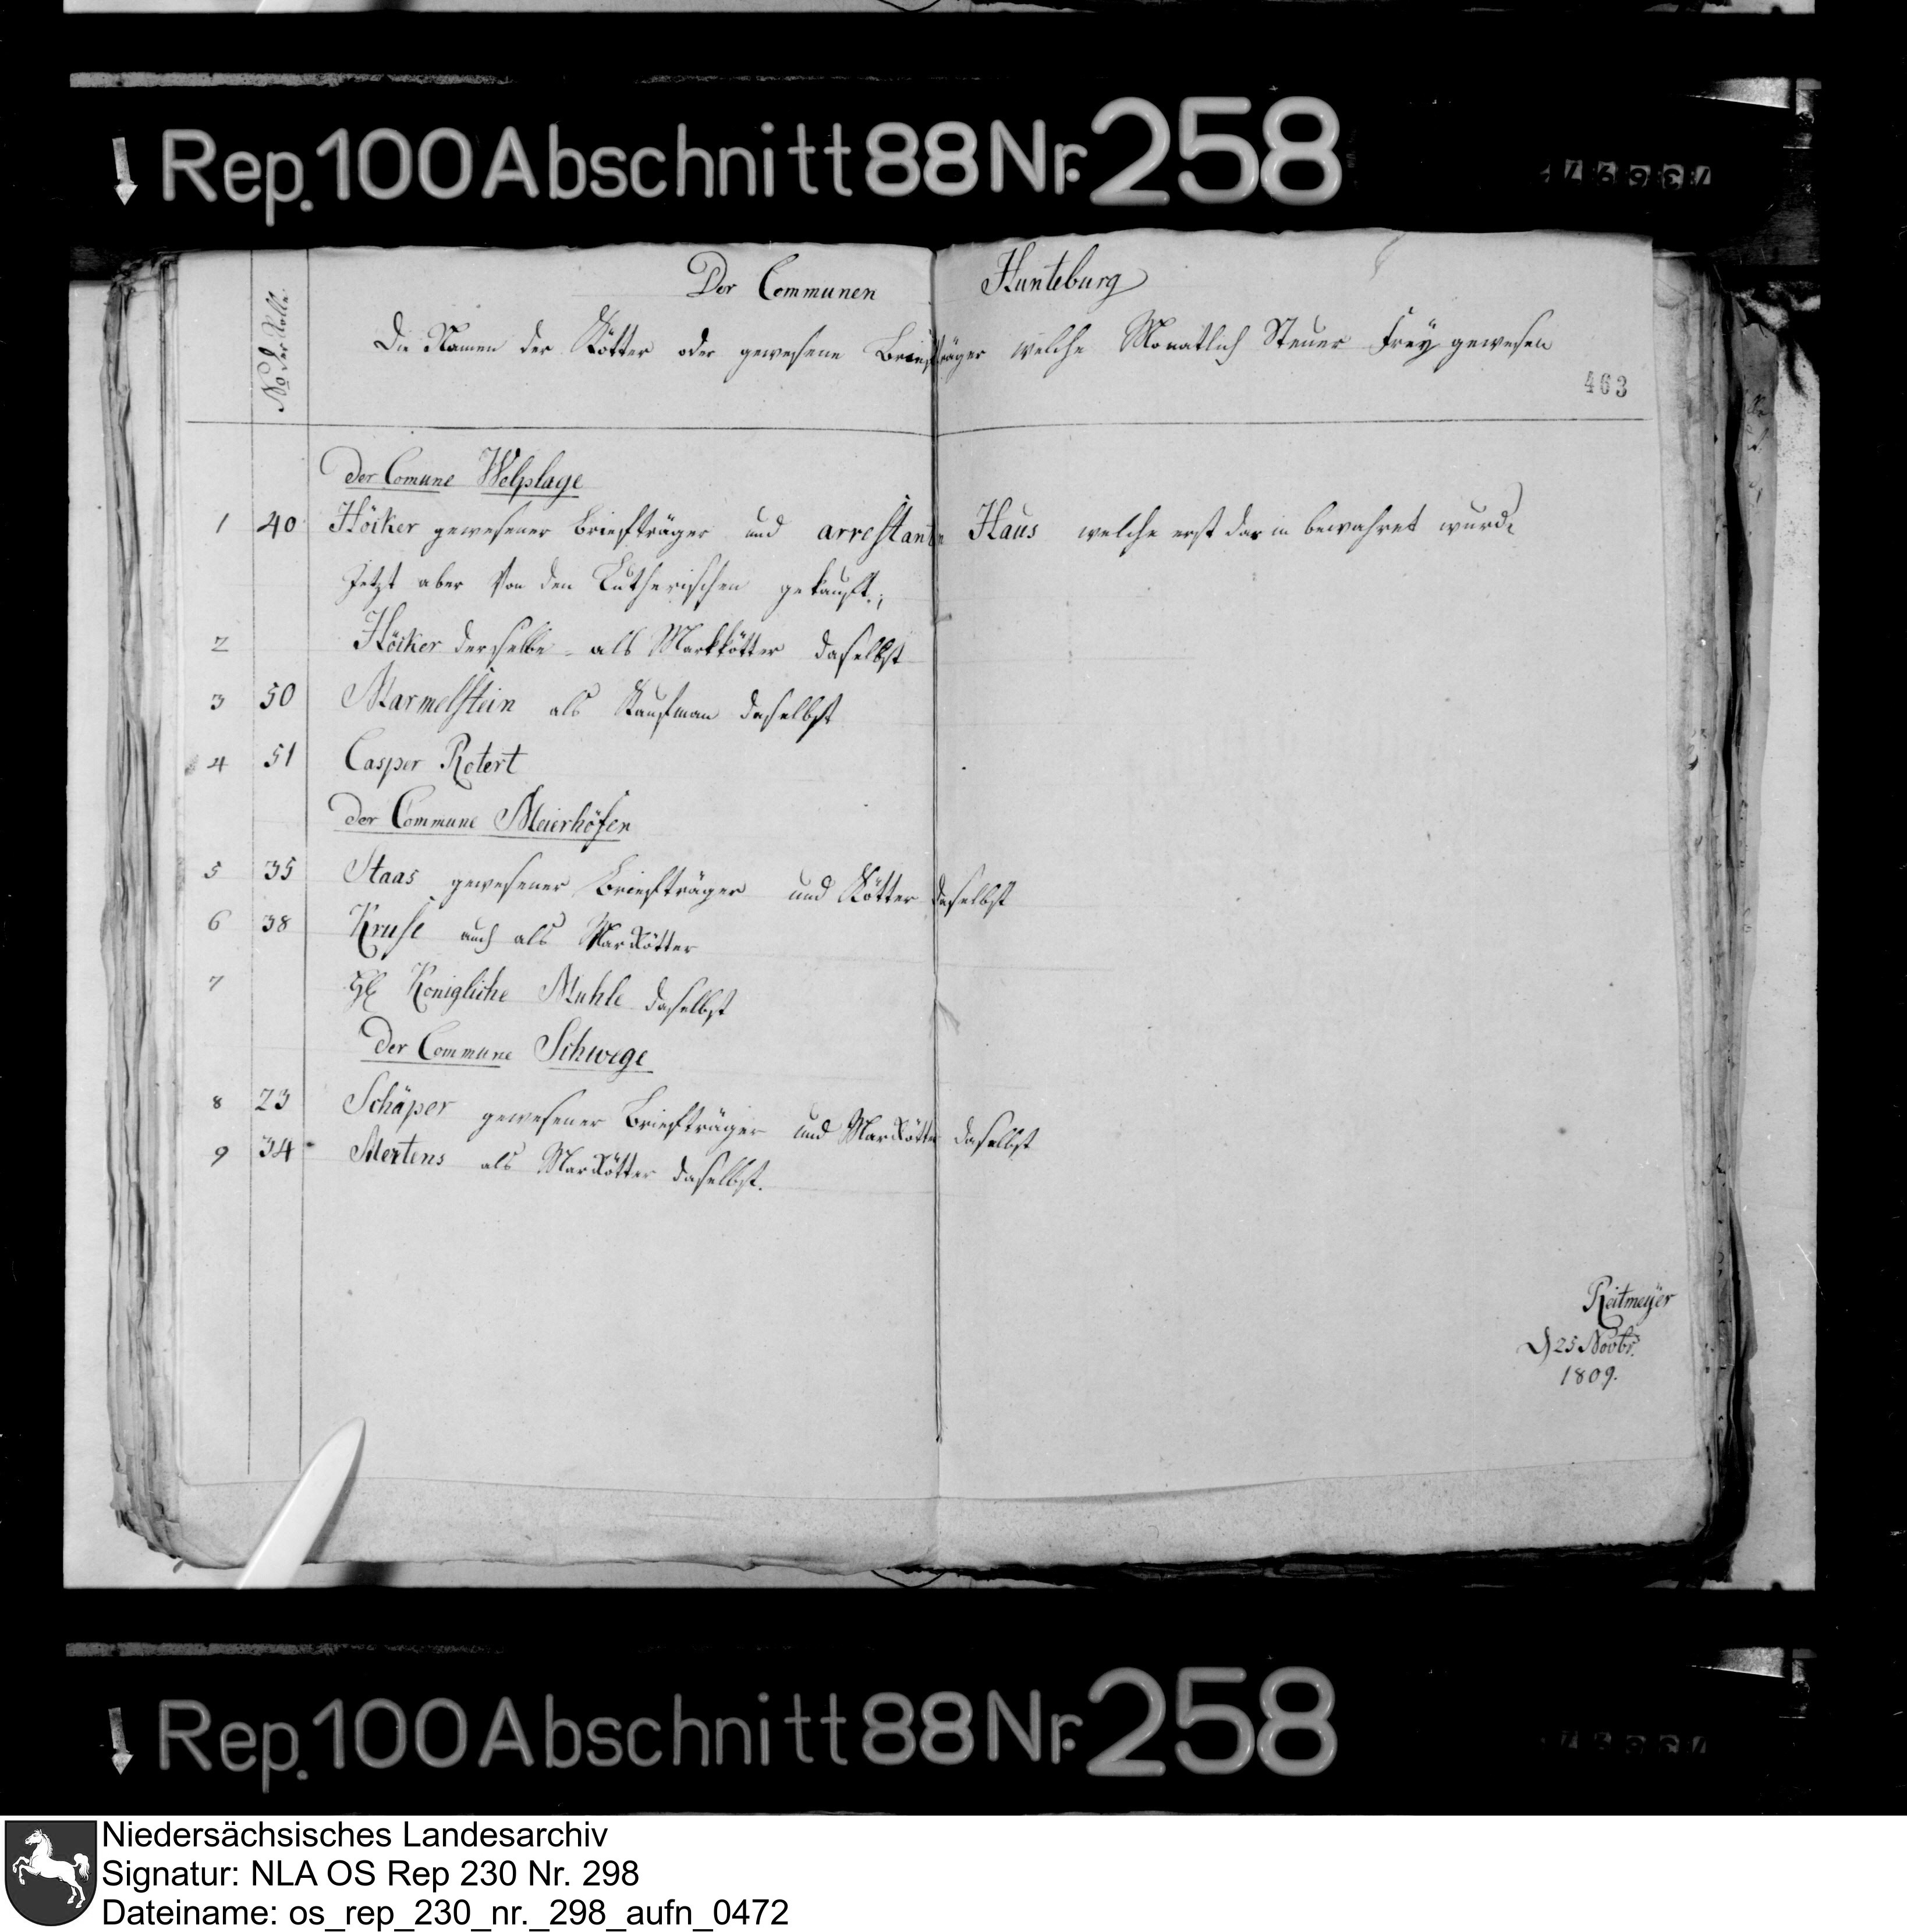 Rep. 100 Abschnitt 88 Nr. 258
Der Communen Hunteburg
No der Rolle
Die Namen der Kötter oder gewesene Briefträger welche Monatlich Steuer Frey gewesen
463
Der Comune Welplage
1 40 Höiker gewesener Briefträger und arrestante Haus welche erst dar in bewahret wurde
Jetzt aber Von den Lutherischen gekauft;
2 Höiker derselbe als Markkötter daselbst
3 50 Marmelstein als Kaufman daselbst
4 51 Casper Rotert
Der Commune Meierhöfen
5 35 Staas gewesener Briefträger und Kötter daselbst
6 38 Kruse auch als MarKötter
7 Königliche Muhle daselbst
Der Commune Schwege
8 23 Schäper gewesener Briefträger und MarKötter daselbst
9 34 Mertens als MarKötter daselbst.
Reitmeÿer
d 25 Novbr.
1809.
Rep. 100 Abschnitt 88 Nr. 258
Niedersächsisches Landesarchiv
Signatur: NLA OS Rep 230 Nr. 298
Dateiname: os_rep_230_nr._298_aufn_0472